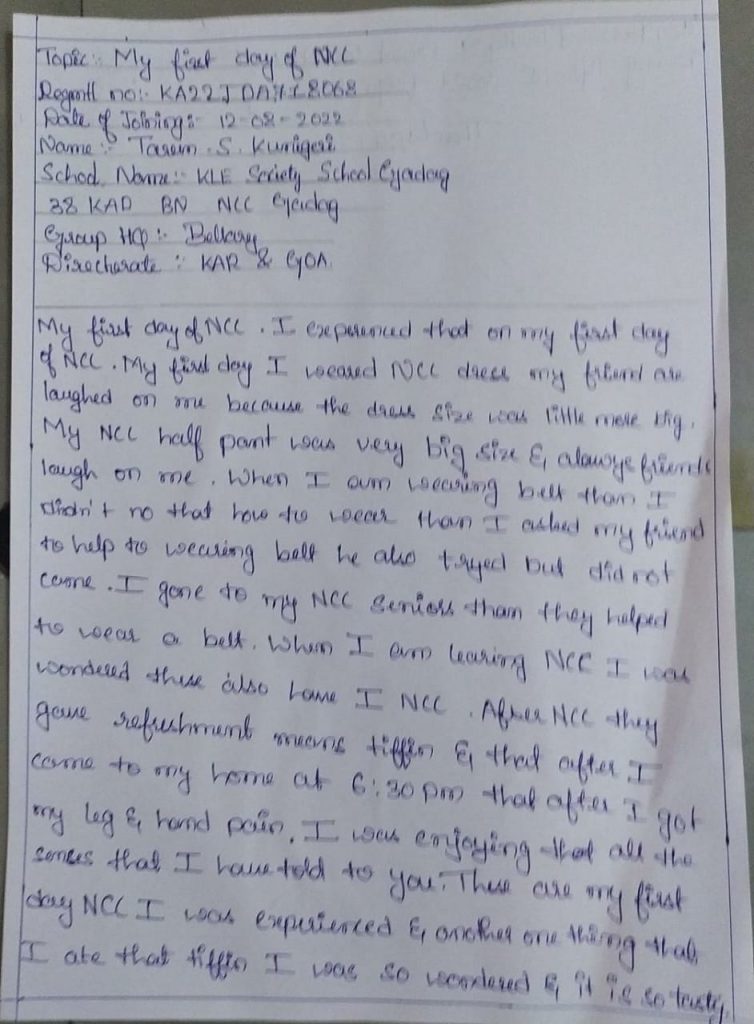 Topic:- My first day of NCC
Regmtl no:- KA22JDA
Date of Joining:- 12-08-2022
Name:- Tasem. S. Kurtigeri
School Name:- KLE Society School Gadag
38 KAR BN NCC Gadag
Group HQ:- Bellary
Directorate:- KAR & GOA
My first day of NCC. I experienced that on my first day
of NCC. My first day I weared NCC dress my friend are
laughed on me because the dress size was little more big.
My NCC half pant was very big size & always friends
laugh on me. When I am wearing belt than I
didn't no that how to wear than I asked my friend
to help to wearing belt he also tryed but did not
come. I gone to my NCC seniors than they helped
to wear a belt. When I am learing NCC I was
wondered these also have I NCC. After NCC they
gave refreshment means tiffin & that after I
came to my home at 6:30 pm that after I got
my leg & hand pain. I was enjoying that all the
senses that I have told to you. These are my first
day NCC I was experienced & another one thing that,
I ate that tiffin I was so wondered & it is so tasty.